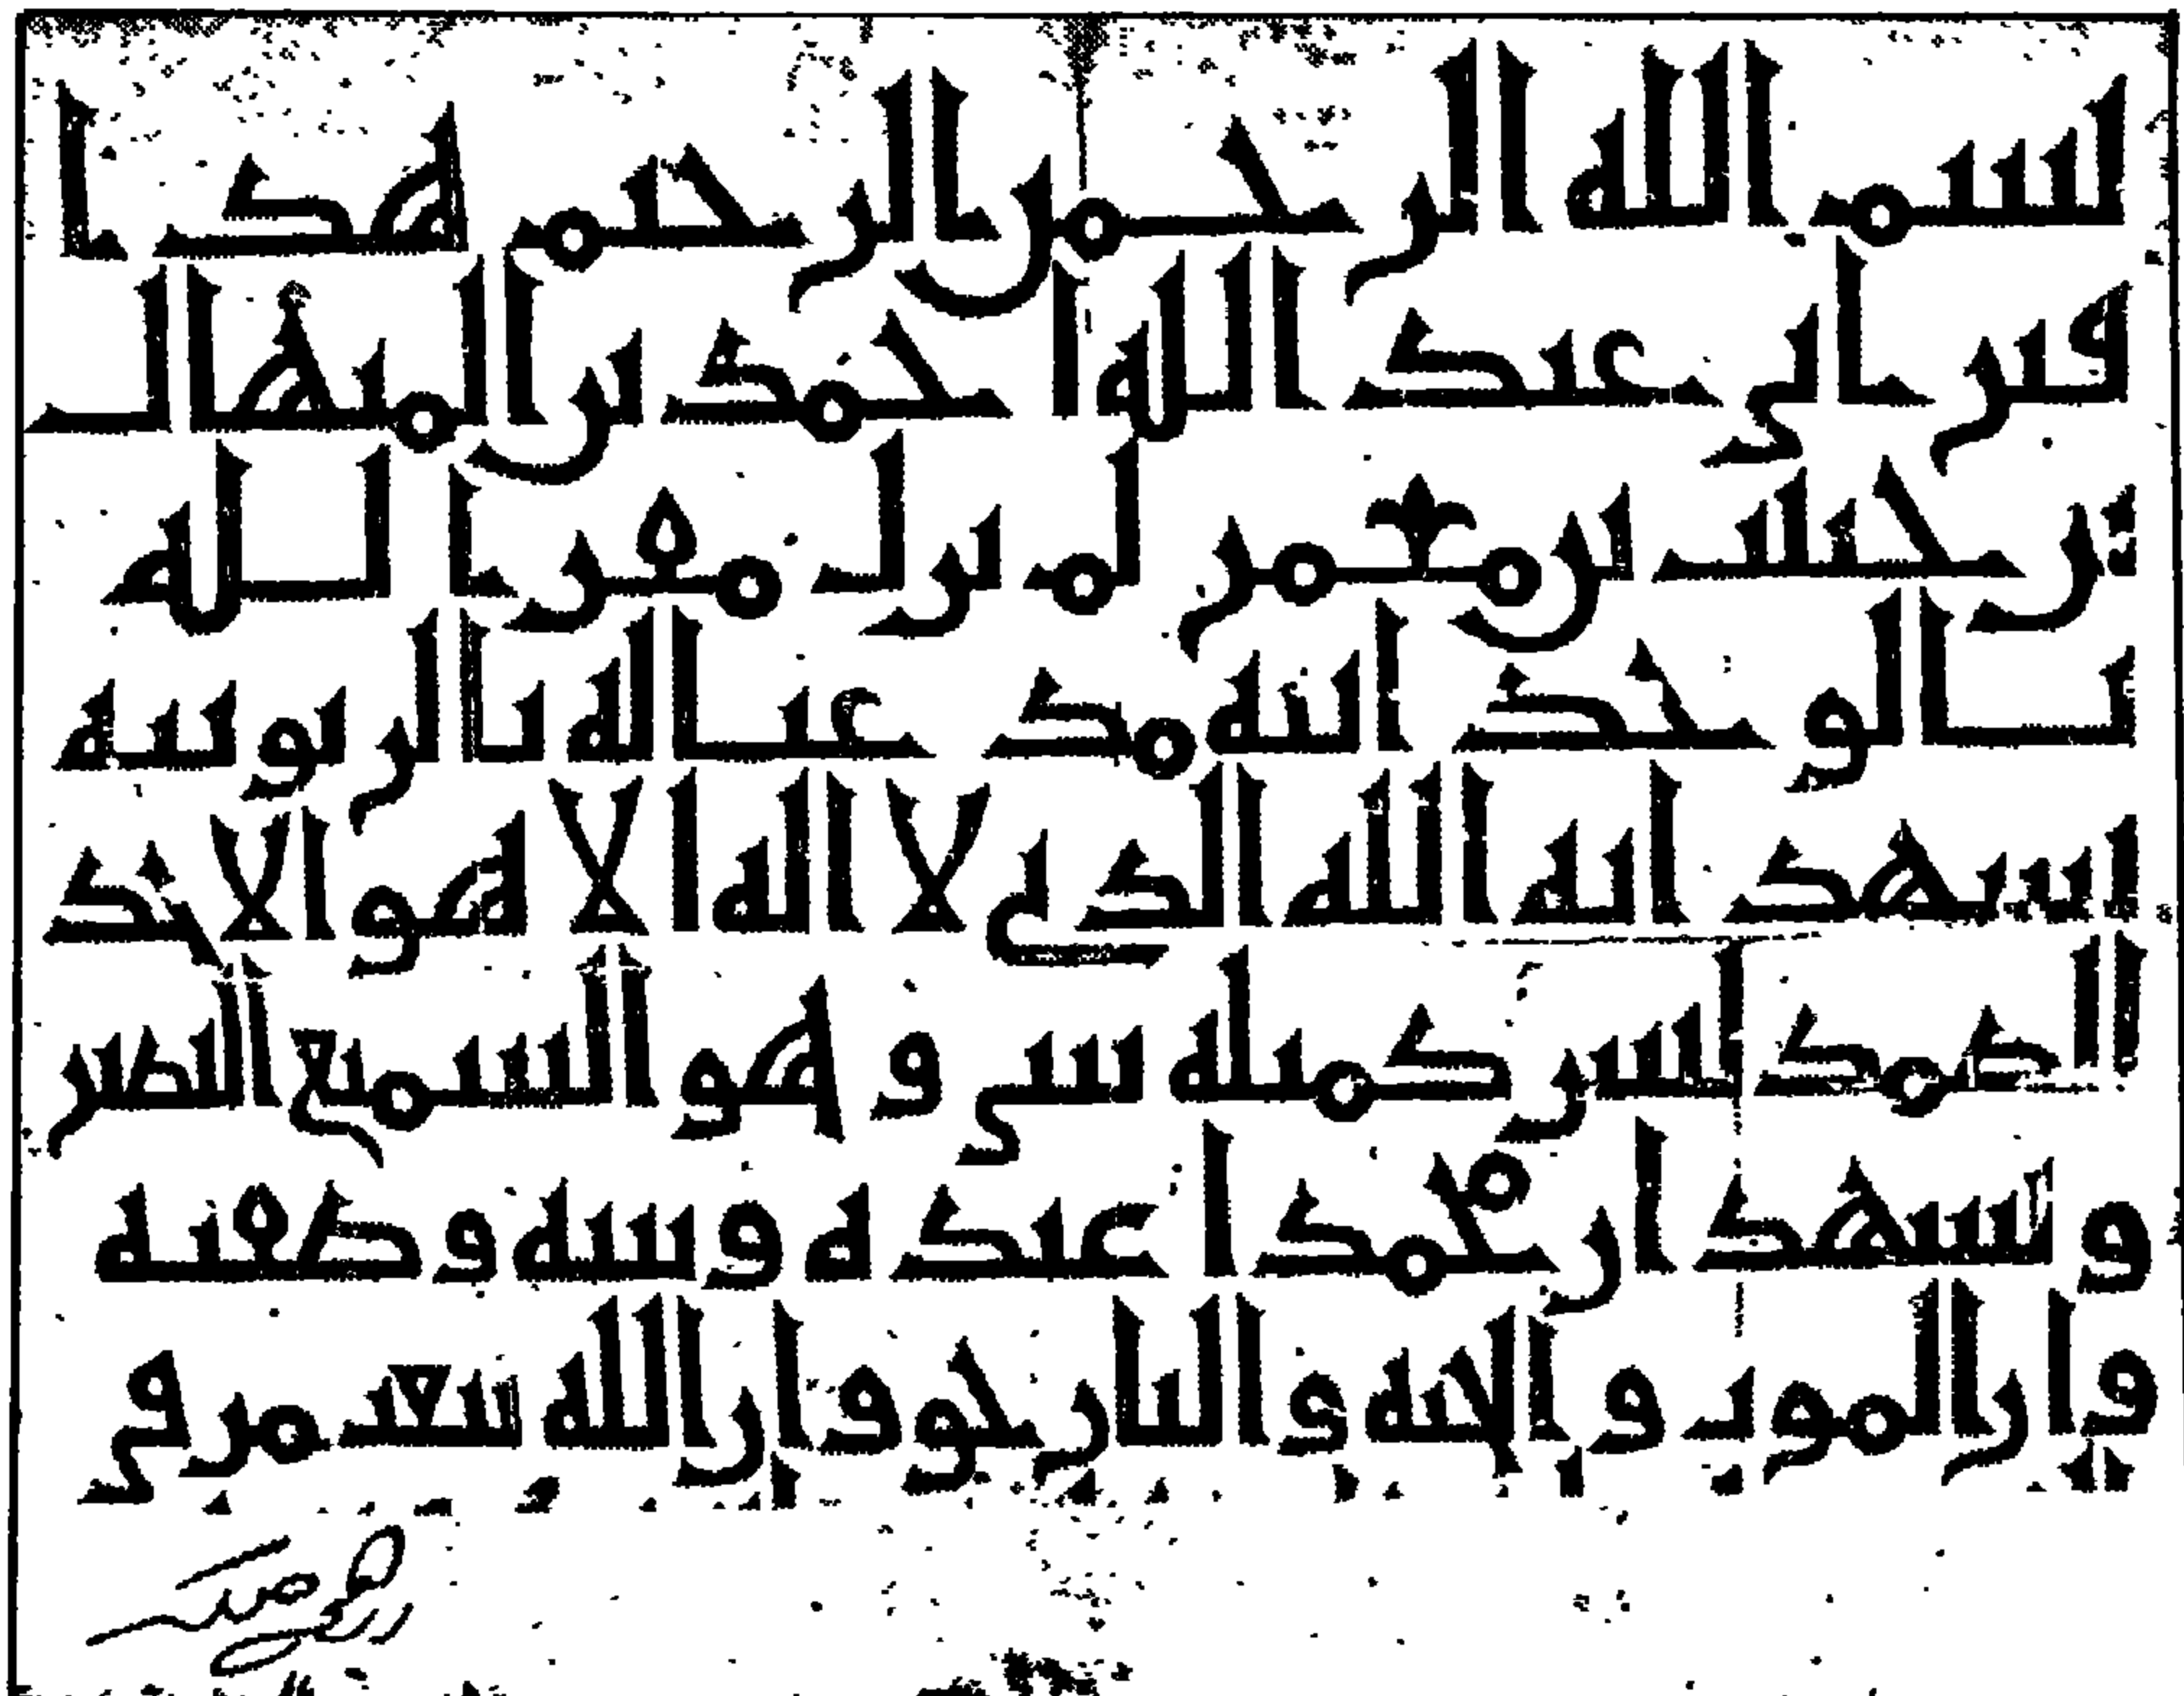 بسم الله الرحمن الرحيم هذا
قبر أبي عبد الله أحمد بن المنهال
بن حبيش بن معمر لم يزل مقرا لله
تعالى وحده الله مد عباله بالربوبيه
يشهد انه الله الذي لا اله الا هو الاحد
الصمد ليس كمثله شي وهو السميع البصير
ونشهد ان محمدا عبده ونبيه وصفيه
وان الموت والجنه والنار حق وان الله يبعث من في